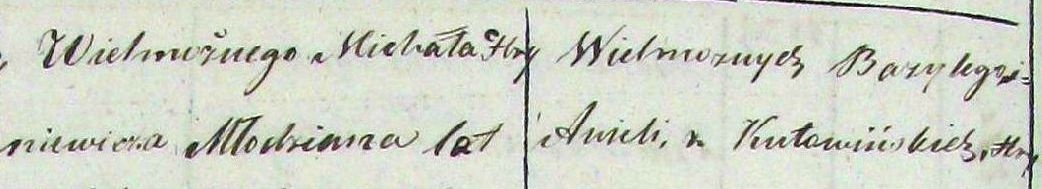 Wielmożnego Michała Hry
niewicza Młodziana lat
Wielmożnych Bazylego i
Anieli, z Kutowińskich, Hry